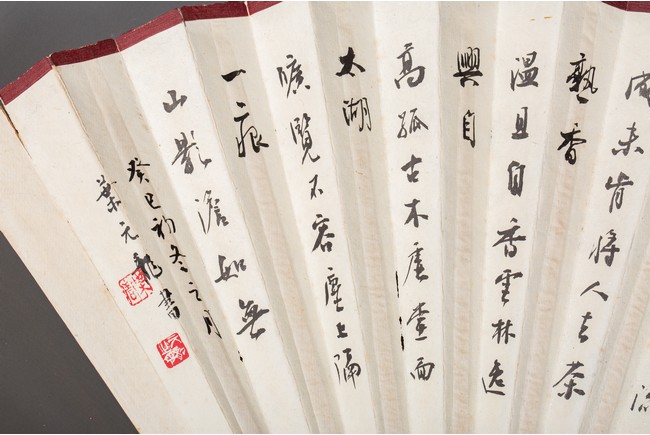 成未肯將人去茶
熟香
溫且自香雲林逸
興自
高孤古木虛查面
太湖
曠覽不容塵土隔
一痕
山影澹如無
癸巳初冬之月
葉元龍書